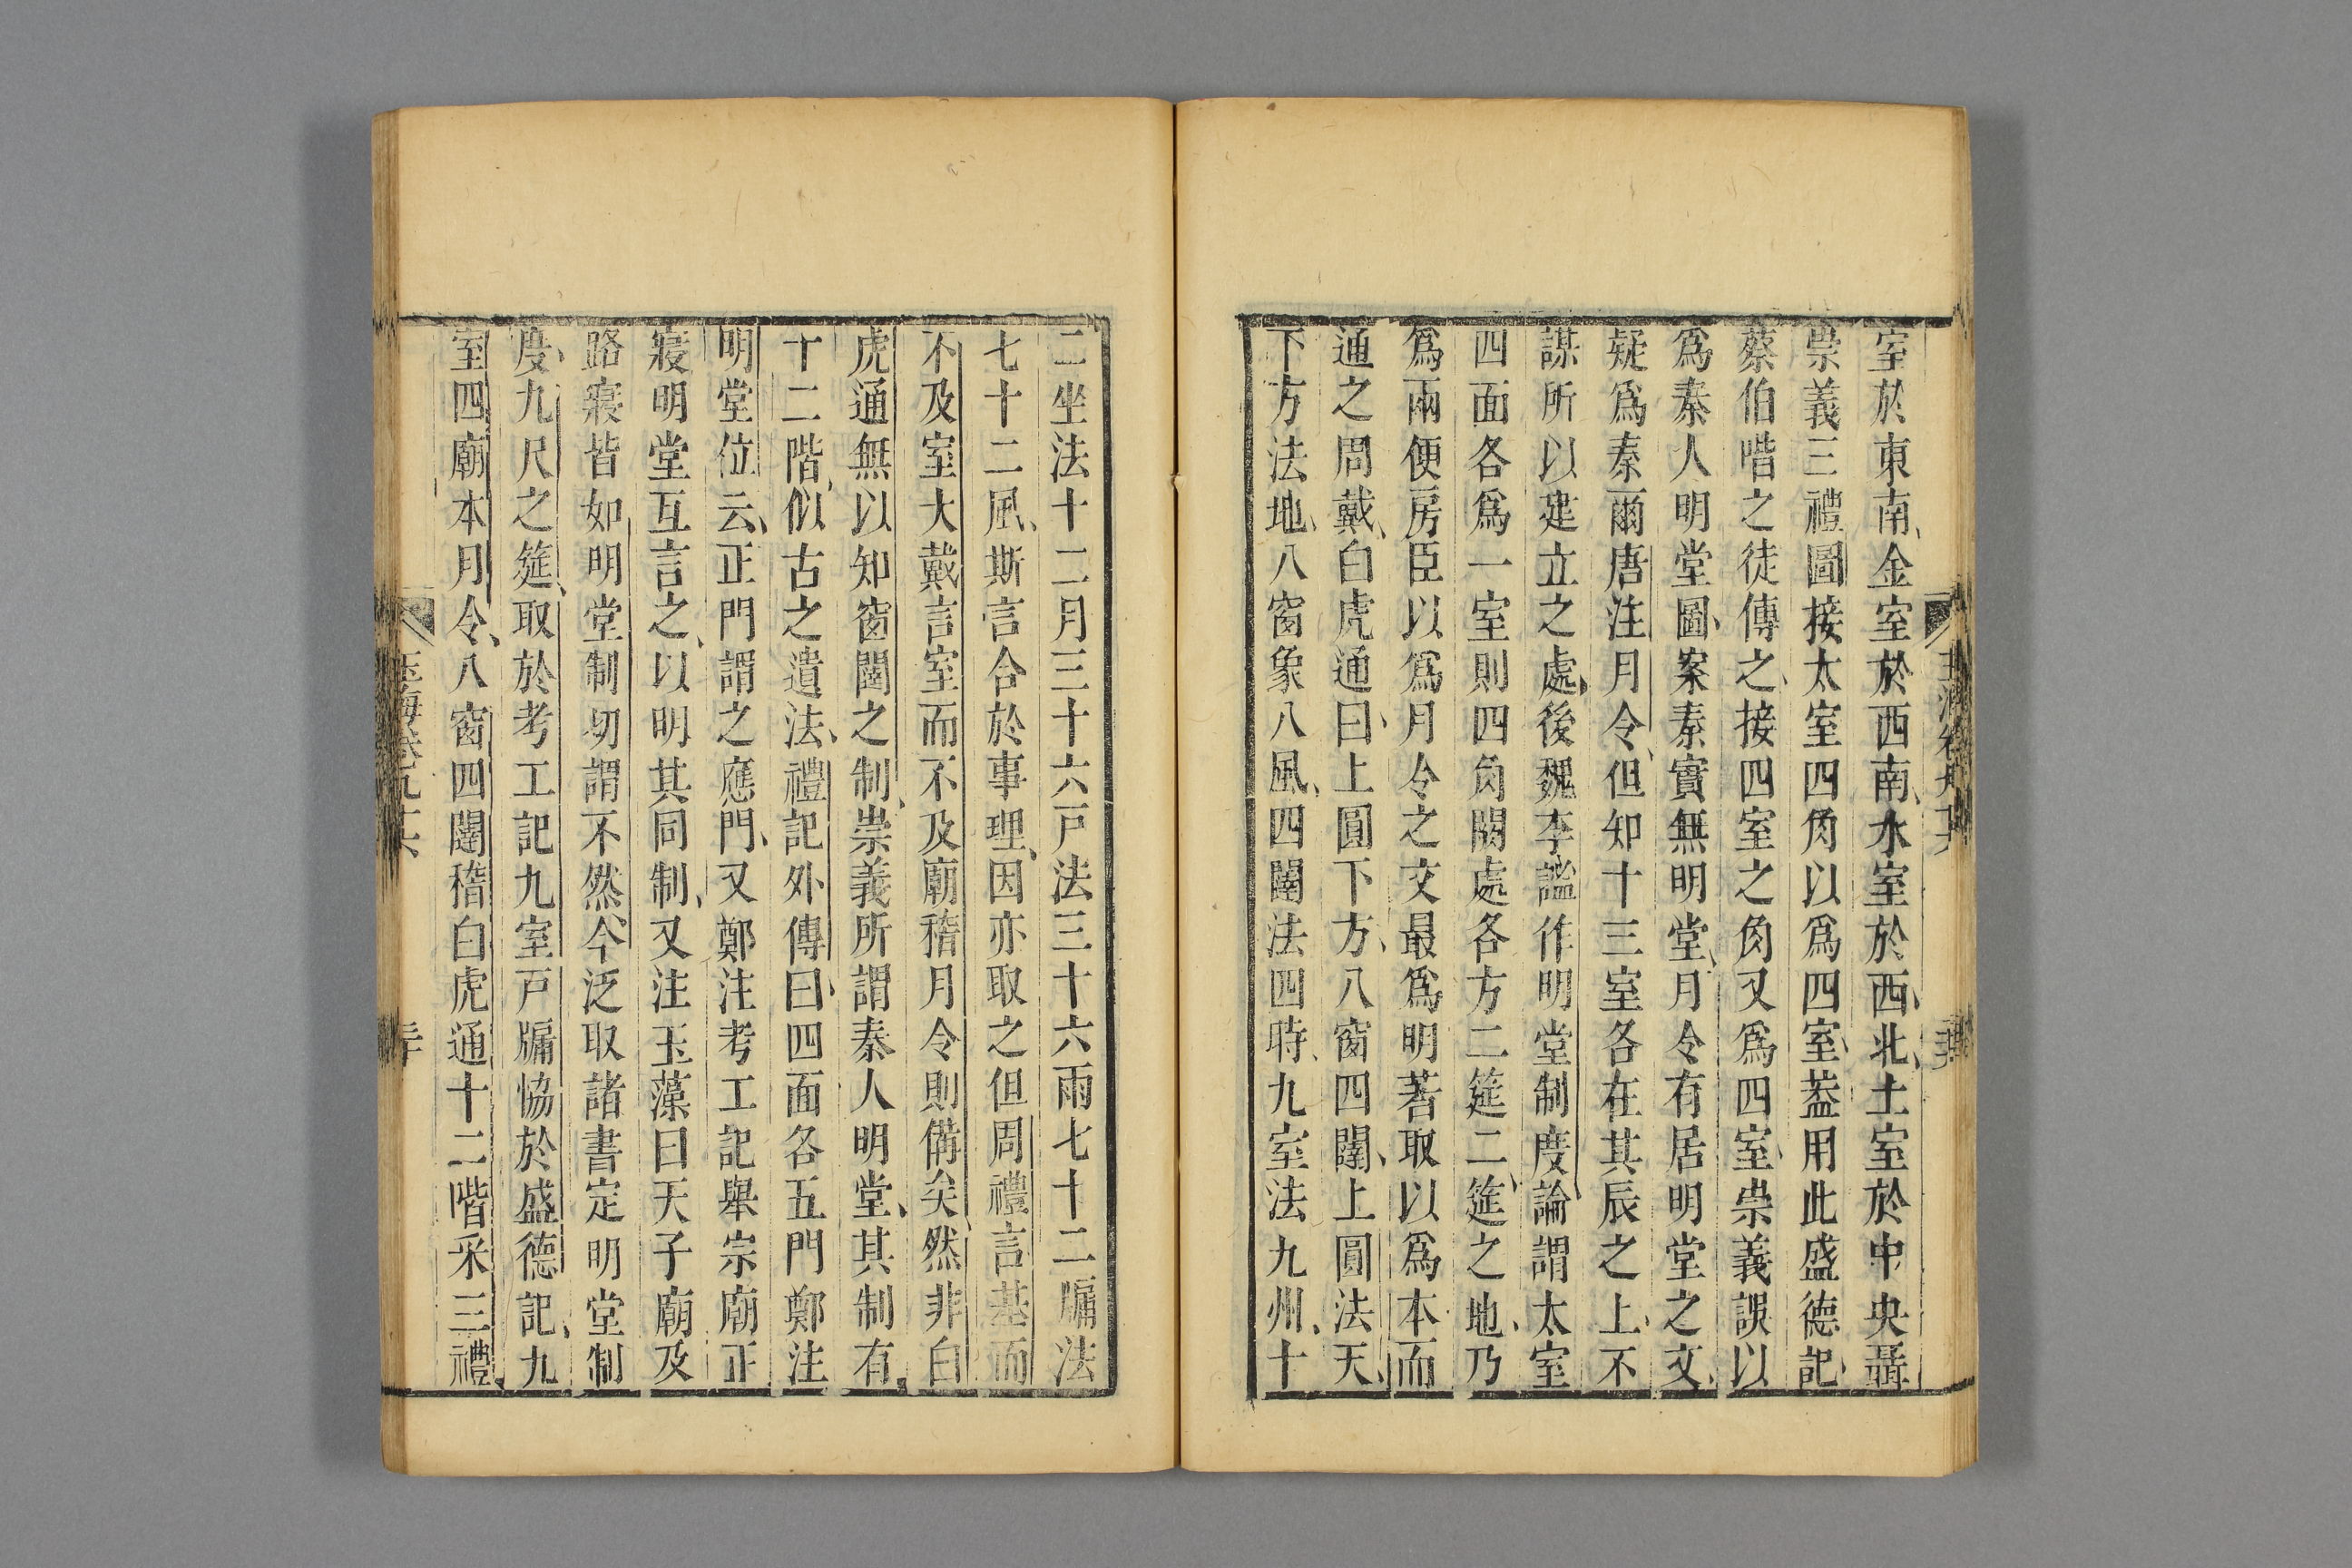 室於東南、金室於西南、水室於西北、土室於中央聶
崇義三禮圖接太室四角以爲四室、葢用此盛德記、
蔡伯喈之徒傳之、接四室之角又爲四室、崇義誤以
爲秦人明堂圖、案秦實無明堂、月令有居明堂之文、
疑爲秦爾唐注月令、但知十三室各在其辰之上、不
謀所以建立之處、後魏李謐作明堂制度論謂太室
四面各爲一室則四角闕處各方二筵二筵之地、乃
爲兩便房臣以爲月令之文最爲明著取以爲本而
通之周戴、白虎通曰、上圓下方、八窗四闥、上圓法天、
下方法地、八窗象八風、四闥法四時、九室法九州、十
二坐法十二月三十六戸法三十六雨七十二牖法
七十二風、斯言合於事理、因亦取之但周禮言基而
不及室大戴言室而不及廟稽月令則備矣然非白
虎通無以知窗闥之制、崇義所謂秦人明堂、其制有
十二階、似古之遺法、禮記外傳曰、四面各五門鄭注
明堂位云、正門謂之應門、又鄭注考工記舉宗廟正
寢明堂互言之、以明其同制、又注玉藻曰天子廟及
路寢皆如明堂制切謂不然、今泛取諸書定明堂制
度、九尺之筵、取於考工記九室戸牖恊於盛德記、九
室四廟本月令、八窗四闥稽白虎通十二階采三禮、